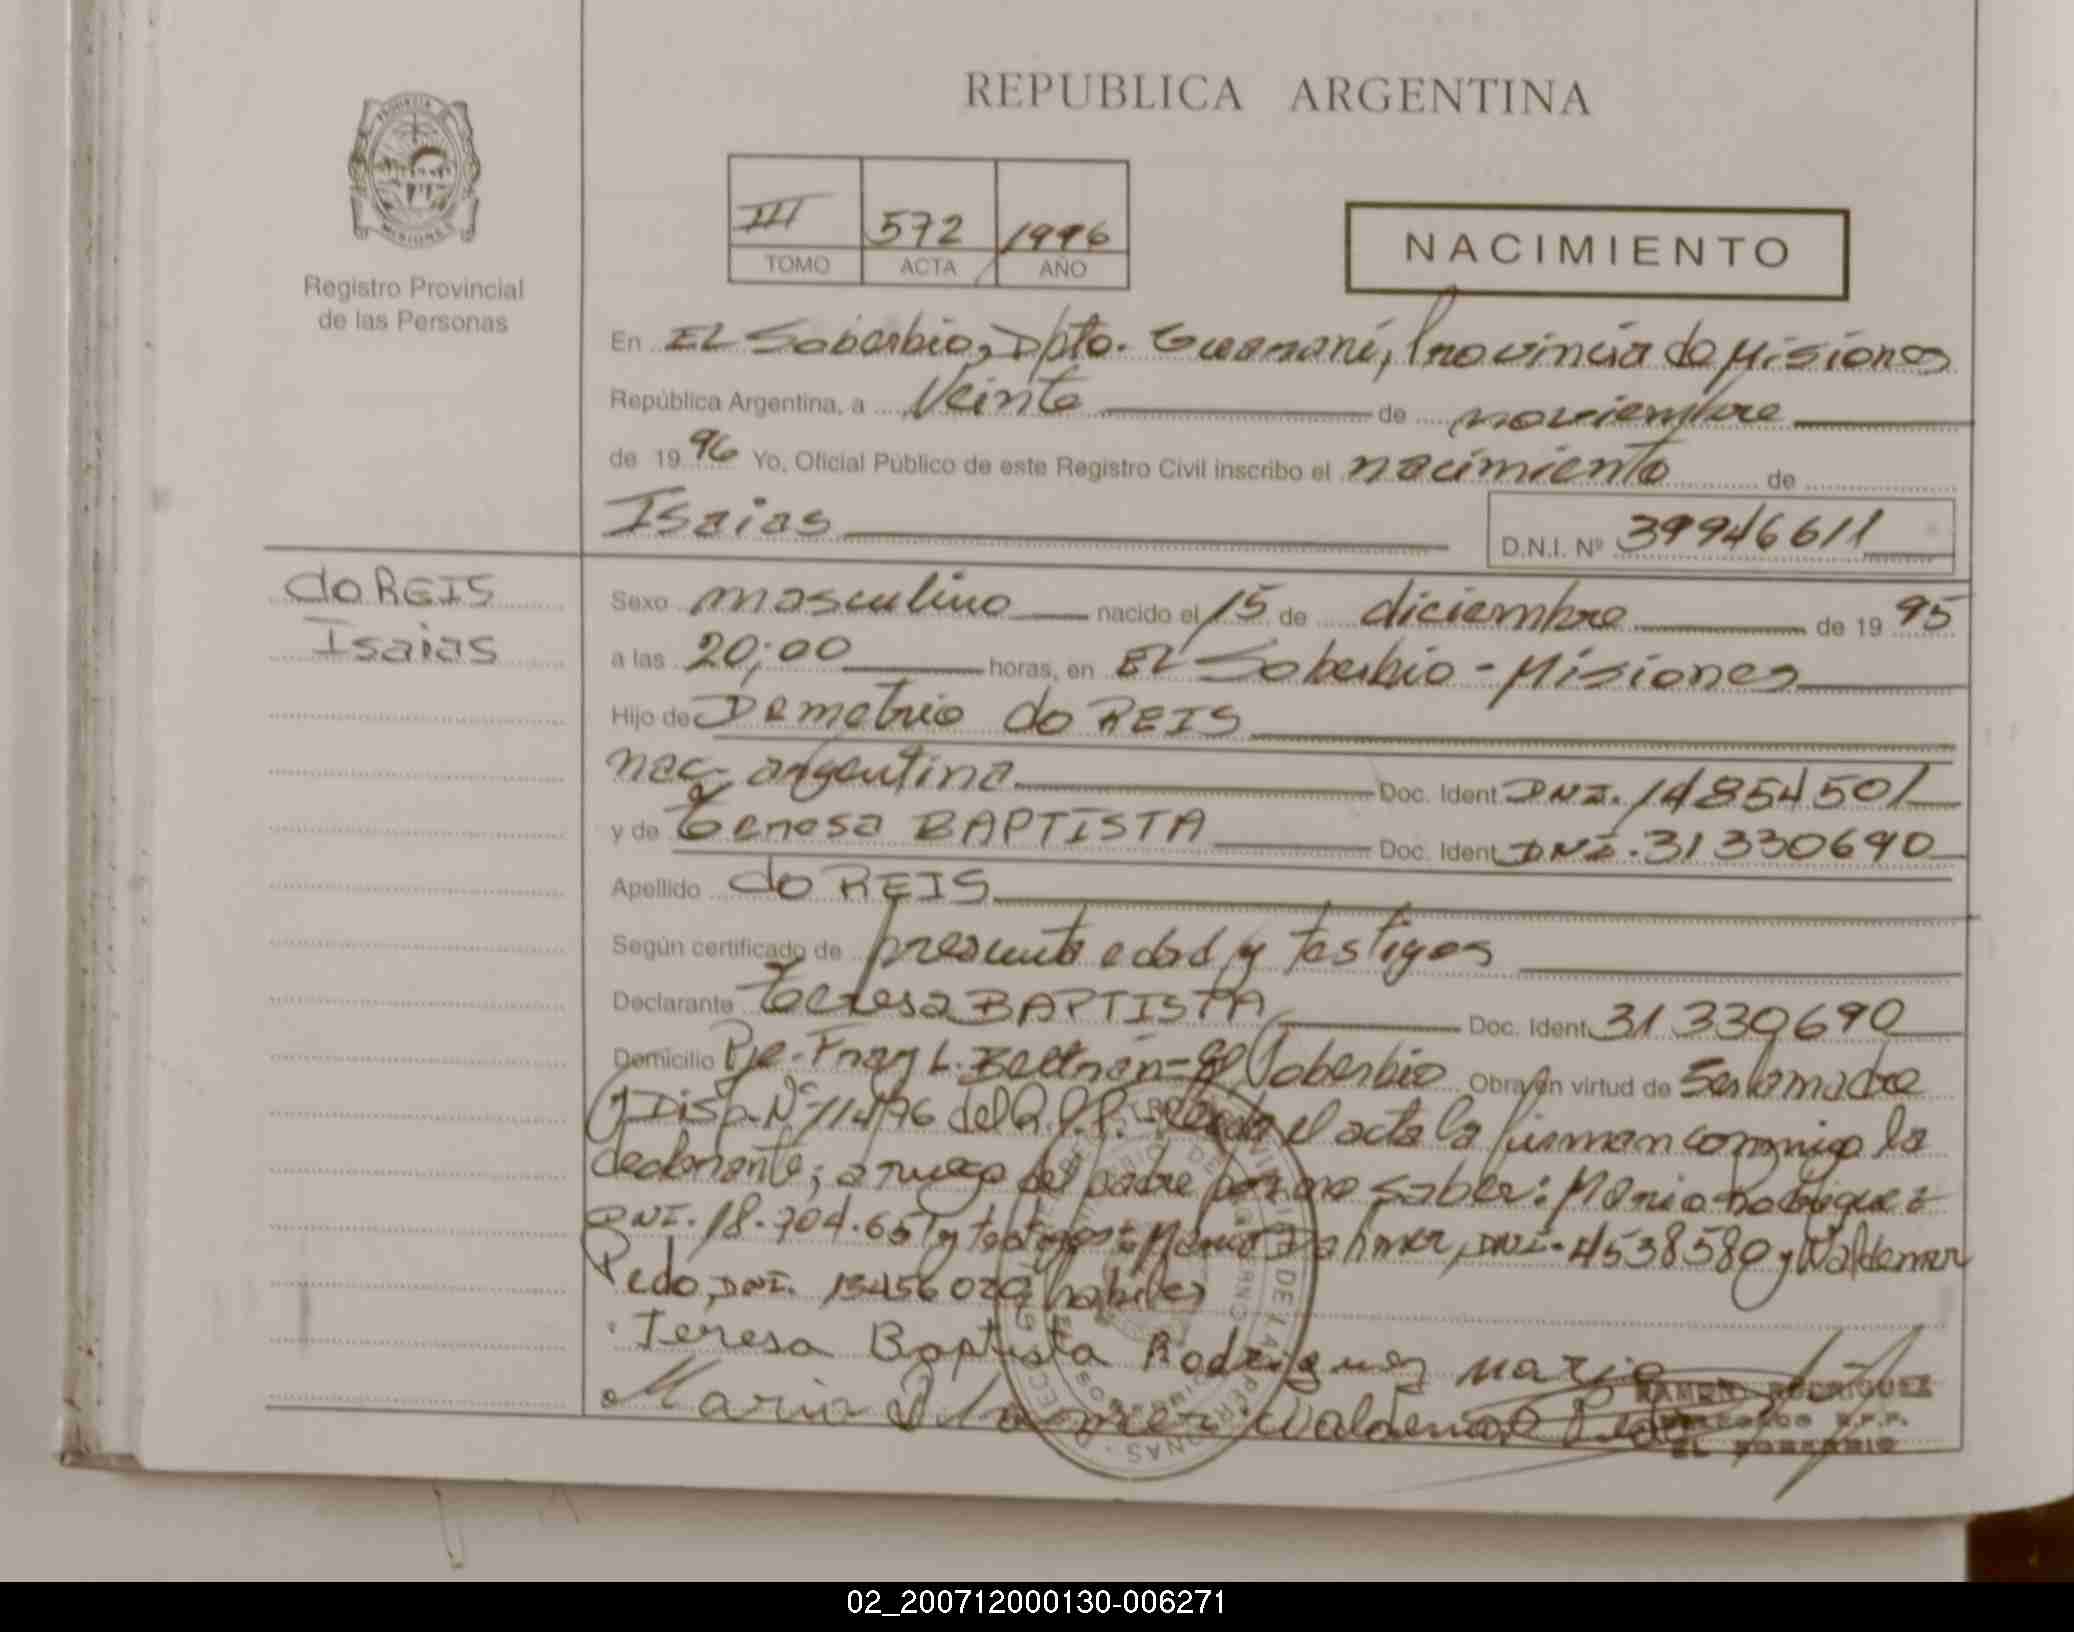 REPUBLICA ARGENTINA
PROVINCIA
MISIONES
Registro Provincial
de las Personas
III 572 1996
TOMO ACTA AÑO
NACIMIENTO
En EL Soberbio, Dpto. Guaraní, Provincia de Misiones
República Argentina, a Veinte de noviembre
de 1996 Yo, Oficial Público de este Registro Civil inscribo el nacimiento de
Isaias D.N.I. Nº 39946611
do REIS
Isaias
Sexo masculino nacido el 15 de diciembre de 1995
a las 20:00 horas, en EL Soberbio - Misiones
Hijo de Demetrio do REIS
nac. argentina Doc. Ident. DNI. 14854501
y de Teresa BAPTISTA Doc. Ident. DNI. 31330690
Apellido do REIS
Según certificado de presunta edad y testigos
Declarante Teresa BAPTISTA Doc. Ident. 31330690
Domicilio Pje. Fray L. Beltrán - El Soberbio Obra en virtud de Ser la madre
y Disp. Nº 114/96 del R.P.P. - Leida el acta la firman conmigo la
declarante; a ruego del padre por no saber: Mario Rodriguez
DNI. 18.704.651 y testigos: Maria Dahmer, DNI. 4538580 y Waldemar
Pedo, DNI. 13456029 habiles
Teresa Baptista Rodriguez Mario
Maria Waldemar
RAMON RODRIGUEZ
R.P.P.
EL SOBERBIO
02_200712000130-006271